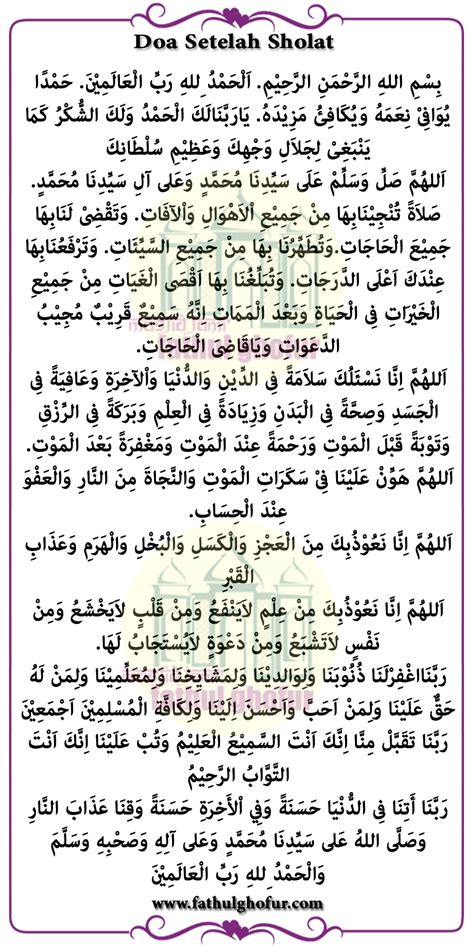 Doa Setelah Sholat
بِسْمِ اللهِ الرَّحْمَنِ الرَّحِيْمِ. اَلْحَمْدُ ِللهِ رَبِّ الْعَالَمِيْنَ. حَمْدًا
يُوَافِيْ نِعَمَهُ وَيُكَافِئُ مَزِيْدَهُ. يَارَبَّنَالَكَ الْحَمْدُ وَلَكَ الشُّكْرُ كَمَا
يَنْبَغِيْ لِجَلاَلِ وَجْهِكَ وَعَظِيْمِ سُلْطَانِكَ
اَللهُمَّ صَلِّ وَسَلِّمْ عَلَى سَيِّدِنَا مُحَمَّدٍ وَعَلى آلِ سَيِّدِنَا مُحَمَّدٍ.
صَلاَةً تُنْجِيْنَابِهَا مِنْ جَمِيْعِ الْاَهْوَالِ وَاْلآفَاتِ. وَتَقْضِىْ لَنَابِهَا
جَمِيْعَ الْحَاجَاتِ.وَتُطَهِّرُنَا بِهَا مِنْ جَمِيْعِ السَّيِّئَاتِ. وَتَرْفَعُنَابِهَا
عِنْدَكَ اَعْلَى الدَّرَجَاتِ. وَتُبَلِّغُنَا بِهَا اَقْصَى الْغَيَاتِ مِنْ جَمِيْعِ
الْخَيْرَاتِ فِى الْحَيَاةِ وَبَعْدَ الْمَمَاتِ اِنَّهُ سَمِيْعٌ قَرِيْبٌ مُجِيْبُ
الدَّعَوَاتِ وَيَاقَاضِىَ الْحَاجَاتِ.
اَللهُمَّ اِنَّا نَسْئَلُكَ سَلاَمَةً فِى الدِّيْنِ وَالدُّنْيَا وَاْلآخِرَةِ وَعَافِيَةً فِى
الْجَسَدِ وَصِحَّةً فِى الْبَدَنِ وَزِيَادَةً فِى الْعِلْمِ وَبَرَكَةً فِى الرِّزْقِ
وَتَوْبَةً قَبْلَ الْمَوْتِ وَرَحْمَةً عِنْدَ الْمَوْتِ وَمَغْفِرَةً بَعْدَ الْمَوْتِ.
اَللهُمَّ هَوِّنْ عَلَيْنَا فِىْ سَكَرَاتِ الْمَوْتِ وَالنَّجَاةَ مِنَ النَّارِ وَالْعَفْوَ
عِنْدَ الْحِسَابِ.
اَللهُمَّ اِنَّا نَعُوْذُبِكَ مِنَ الْعَجْزِ وَالْكَسَلِ وَالْبُخْلِ وَالْهَرَمِ وَعَذَابِ
الْقَبْرِ
اَللهُمَّ اِنَّا نَعُوْذُبِكَ مِنْ عِلْمٍ لاَيَنْفَعُ وَمِنْ قَلْبٍ لاَيَخْشَعُ وَمِنْ
نَفْسٍ لاَتَشْبَعُ وَمِنْ دَعْوَةٍ لاَيُسْتَجَابُ لَهَا.
رَبَّنَااغْفِرْلَنَا ذُنُوْبَنَا وَلِوَالِدِيْنَا وَلِمَشَايِخِنَا وَلِمُعَلِّمِيْنَا وَلِمَنْ لَهُ
حَقٌّ عَلَيْنَا وَلِمَنْ اَحَبَّ وَاَحْسَنَ اِلَيْنَا وَلِكَافَّةِ الْمُسْلِمِيْنَ اَجْمَعِيْنَ
رَبَّنَا تَقَبَّلْ مِنَّا اِنَّكَ اَنْتَ السَّمِيْعُ الْعَلِيْمُ وَتُبْ عَلَيْنَا اِنَّكَ اَنْتَ
التَّوَّابُ الرَّحِيْمُ
رَبَّنَا أَتِنَا فِي الدُّنْيَا حَسَنَةً وَفِي اْلأَخِرَةِ حَسَنَةً وَقِنَا عَذَابَ النَّارِ
وَصَلَّى اللهُ عَلى سَيِّدِنَا مُحَمَّدٍ وَعَلى آلِهِ وَصَحْبِهِ وَسَلَّمَ
وَالْحَمْدُ ِللهِ رَبِّ الْعَالَمِيْنَ
www.fathulghofur.com
masjid jami'
fathul ghofur
fathul ghofur